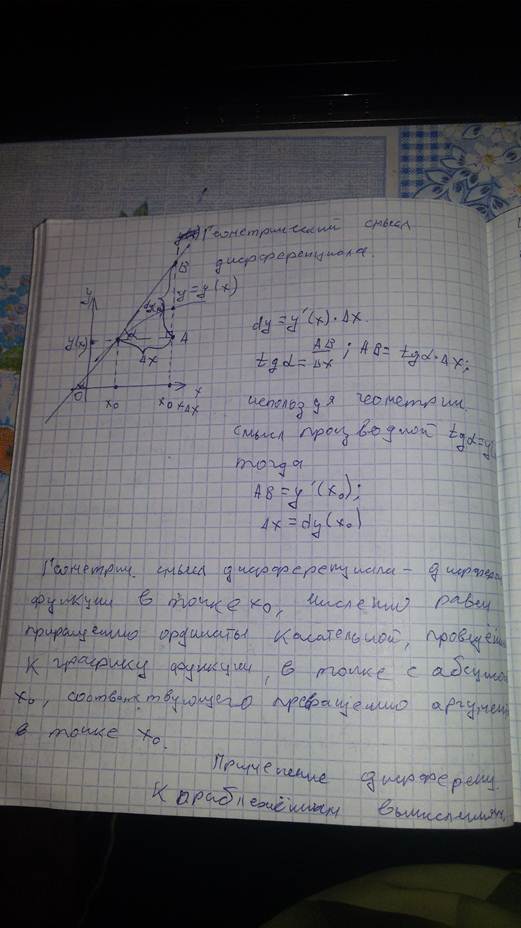 Геометрический смысл
дифференциала.
y
B
dy
y=y(x)
y(x)
α
A
Δx
0
x₀
x₀+Δx
x
dy = y'(x)·Δx.
tgα = AB/Δx ; AB = tgα·Δx;
используя геометрич.
смысл производной tgα=y'(
тогда
AB = y'(x₀);
Δx = dy(x₀)
Геометрич. смысл дифференциала – дифферен
функции в точке x₀, численно равен
приращению ординаты касательной, проведён
к графику функции, в точке с абсцисс
x₀, соответствующего превращению аргумен
в точке x₀.
Применение дифференц.
к приближённым вычислениям.